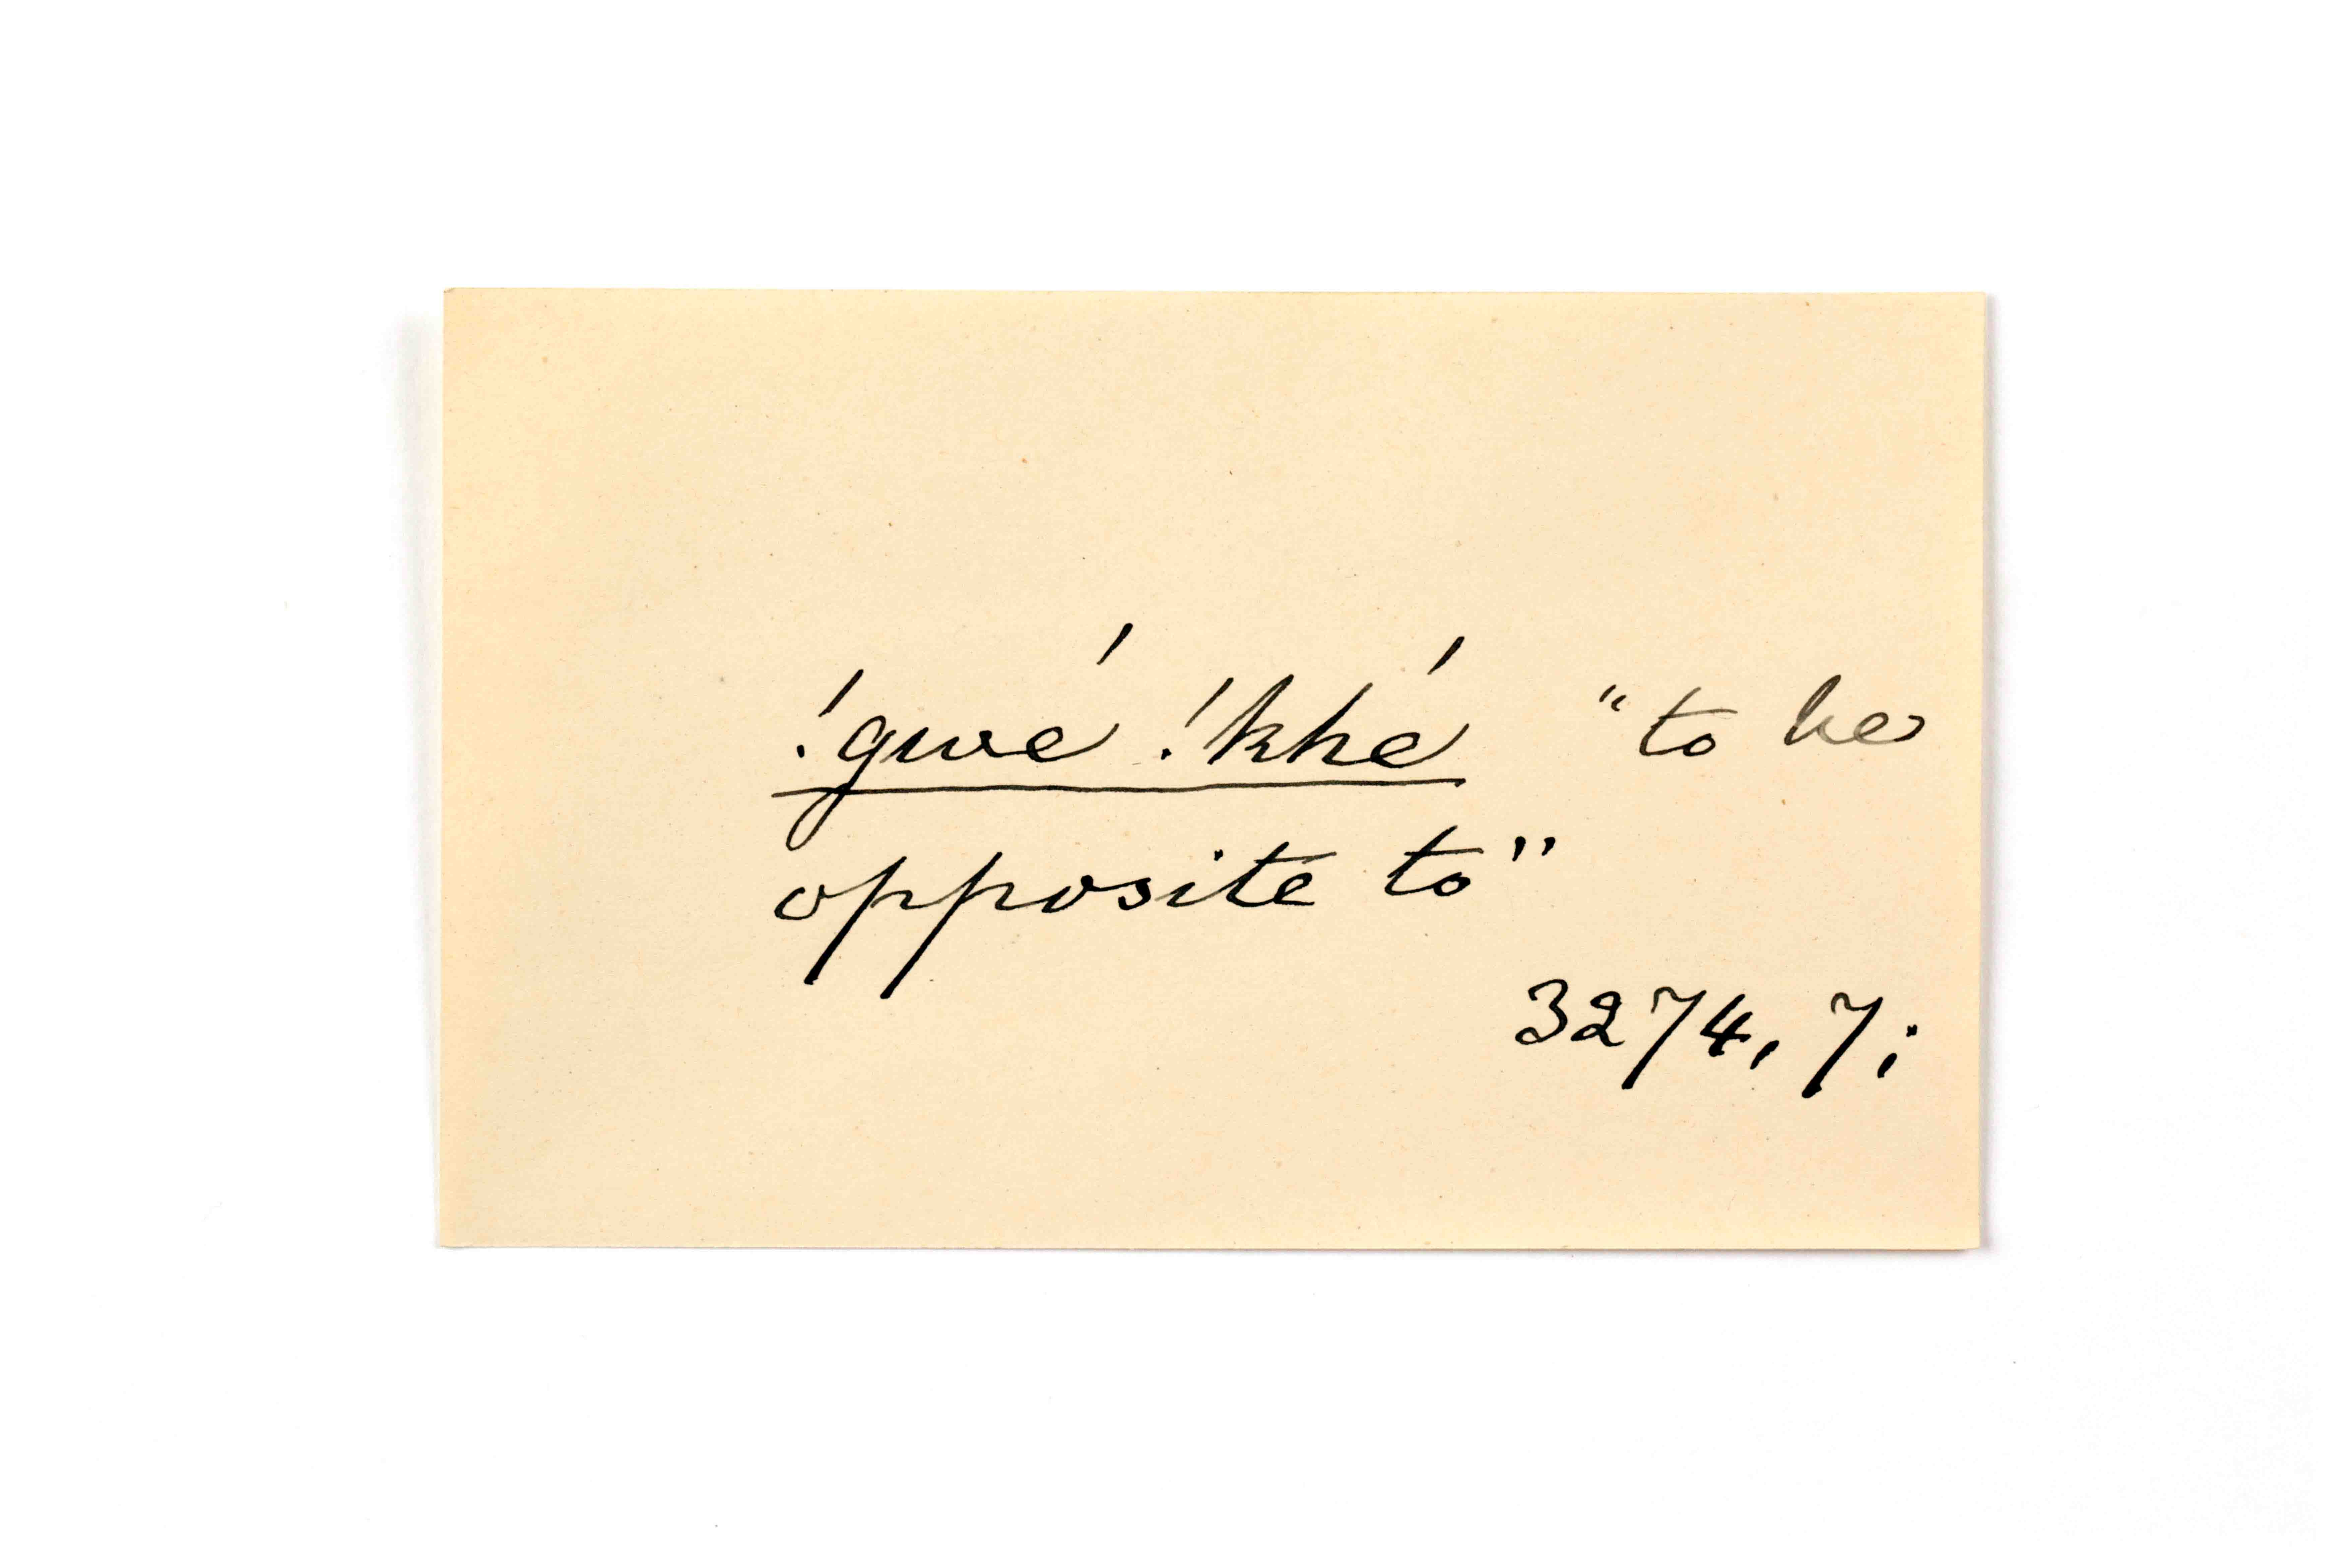 !gwé !khé “to be
opposite to”
3274, 7;